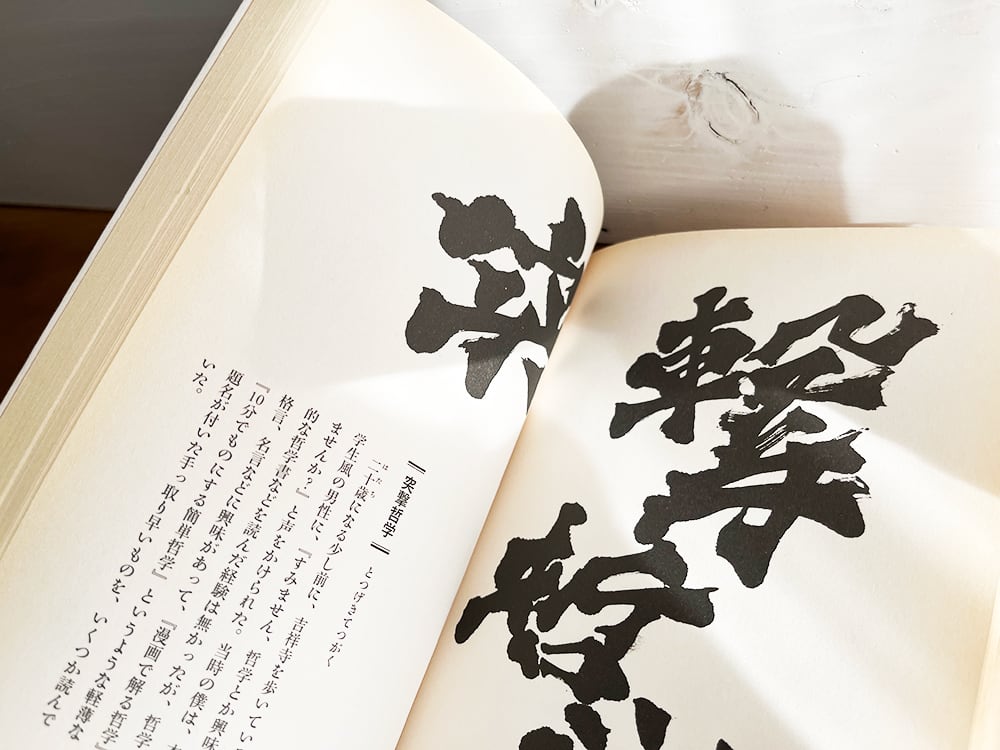 突
撃
哲
突撃哲学　とつげきてつがく
二十歳になる少し前に、吉祥寺を歩いてい
はたち
学生風の男性に、『すみません、哲学とか興味
ませんか？』と声をかけられた。当時の僕は、
的な哲学書などを読んだ経験は無かったが、
格言、名言などに興味があって、『漫画で解る哲学』
『10分でものにする簡単哲学』というような軽薄な
題名が付いた手っ取り早いものを、いくつか読んで
いた。